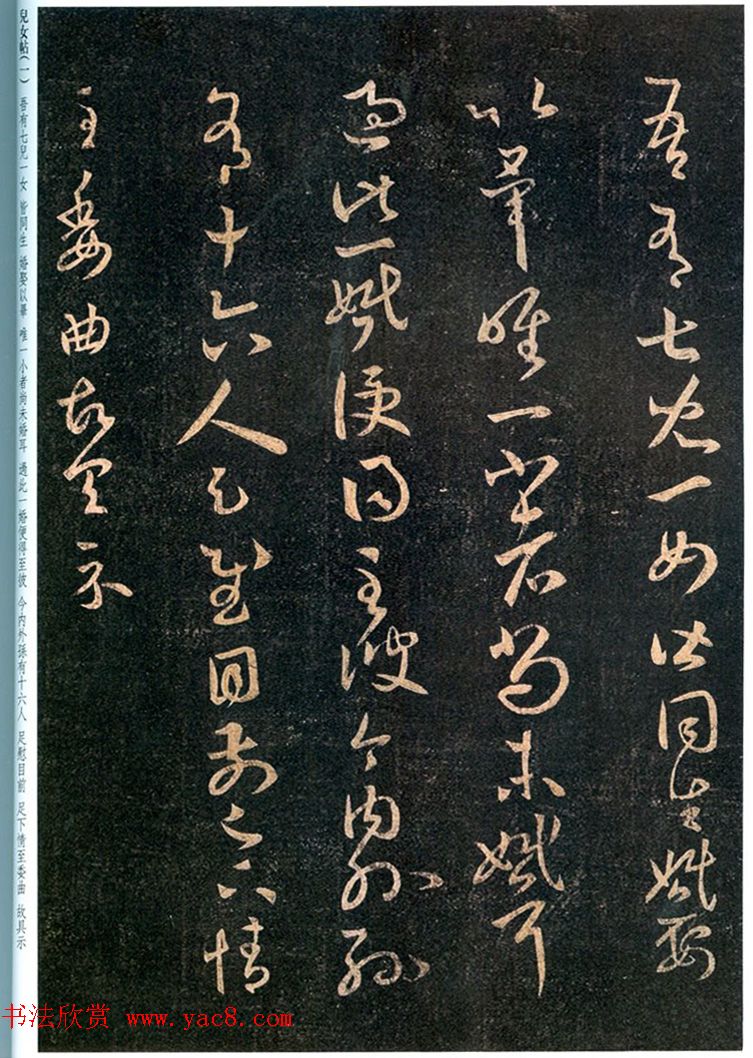 吾有七兒一女皆同生婚娶
以畢唯一小者尚未婚耳
過此一婚便得至彼今內外孫
有十六人足慰目前足下情
至委曲故具示
兒女帖(一) 吾有七兒一女 皆同生 婚娶以畢 唯一小者尚未婚耳 過此一婚便得至彼 今內外孫有十六人 足慰目前 足下情至委曲 故具示
书法欣赏 www.yac8.com